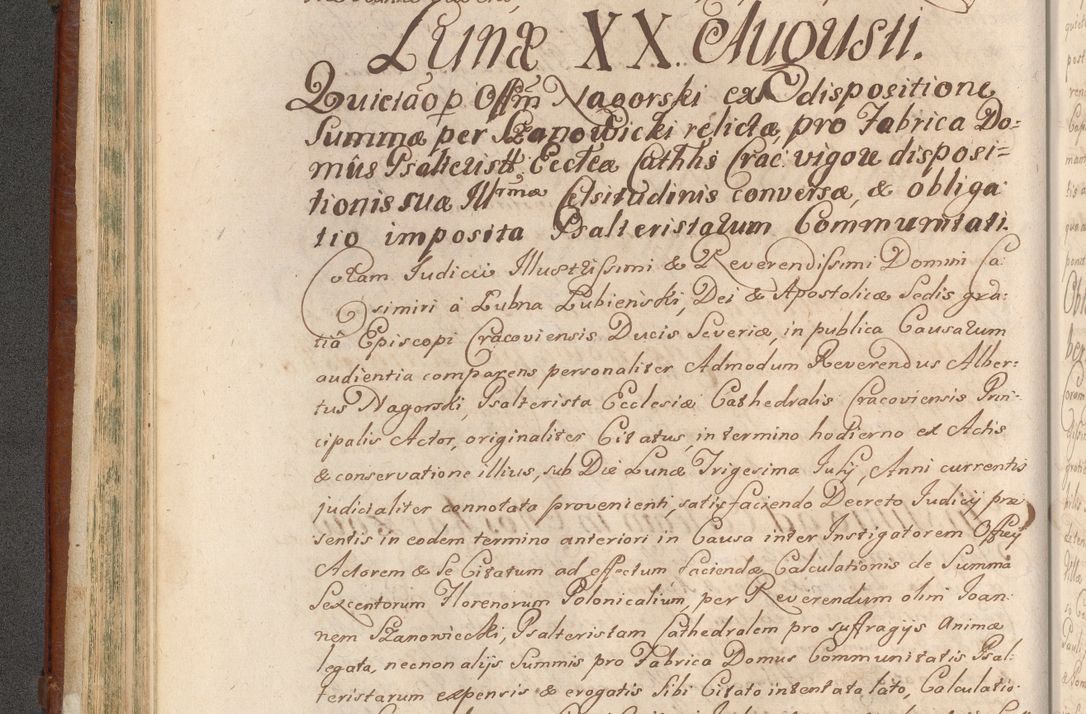 Lunæ XX Augusti.
Quietãõ p Offm̃ Nagorski ex dispositione
Summæ per Szanowicki relictæ, pro Fabrica Do=
mûs Psalteristt Eccl̃ea Cathlis Crac: vigore disposi=
tionis suæ Illrmæ Celsitudinis conversæ, & obliga
tio imposita Psalteristarum Communitati.
Coram Iudicio Illustrissimi & Reverendissimi Domini Ca=
simiri à Lubna Łubieński, Dei & Apostolicæ Sedis gra=
tiâ Episcopi Cracoviensis Ducis Severiæ, in publica Causarum
audientia comparens personaliter Admodum Reverendus Alber=
tus Nagorski, Psalterista Ecclesiæ Cathedralis Cracoviensis Prin=
cipalis Actor, originaliter Citatus, in termino hodierno ex Actis
& conservatione illius, sub Die Lunæ Trigesima Iulij, Anni currentis
judicialiter connotata provenienti, satisfaciendo Decreto Iudicij præ
sentis in eodem termino anteriori in Causa inter Instigatorem Officij
Actorem & Se Citatum ad effectum faciendæ Calculationis de Summa
Sexcentorum Florenorum Polonicalium, per Reverendum olim Ioan=
nem Szanowiecki, Psalteristam Cathedralem pro suffragijs Animæ
legata, necnon alijs Summis pro Fabrica Domus Communitatis Psal=
teristarum expensis & erogatis Sibi Citato intentata, lato, Calculatio=